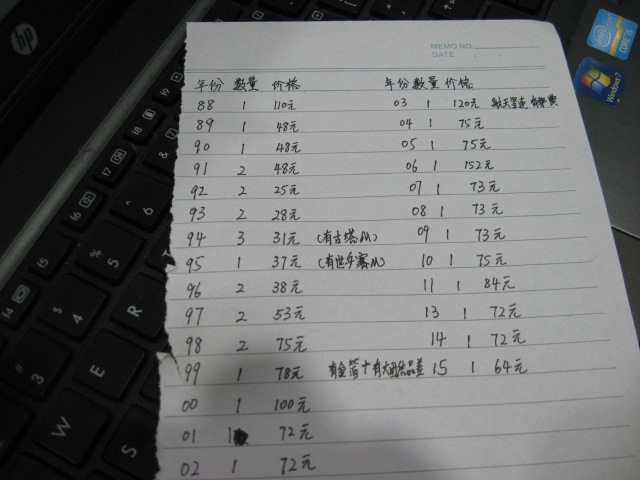 MEMO NO.
DATE
年份 数量 价格
88 1 110元
89 1 48元
90 1 48元
91 2 48元
92 2 25元
93 2 28元
94 3 31元 (有古塔M)
95 1 37元 (有世乒赛M)
96 2 38元
97 2 53元
98 2 75元
99 1 78元
00 1 100元
01 1 72元
02 1 72元
年份 数量 价格
03 1 120元
04 1 75元
05 1 75元
06 1 152元
07 1 73元
08 1 73元
09 1 73元
10 1 75元
11 1 84元
13 1 72元
14 1 72元
15 1 64元
hp
intel
CORE i5
Windows 7